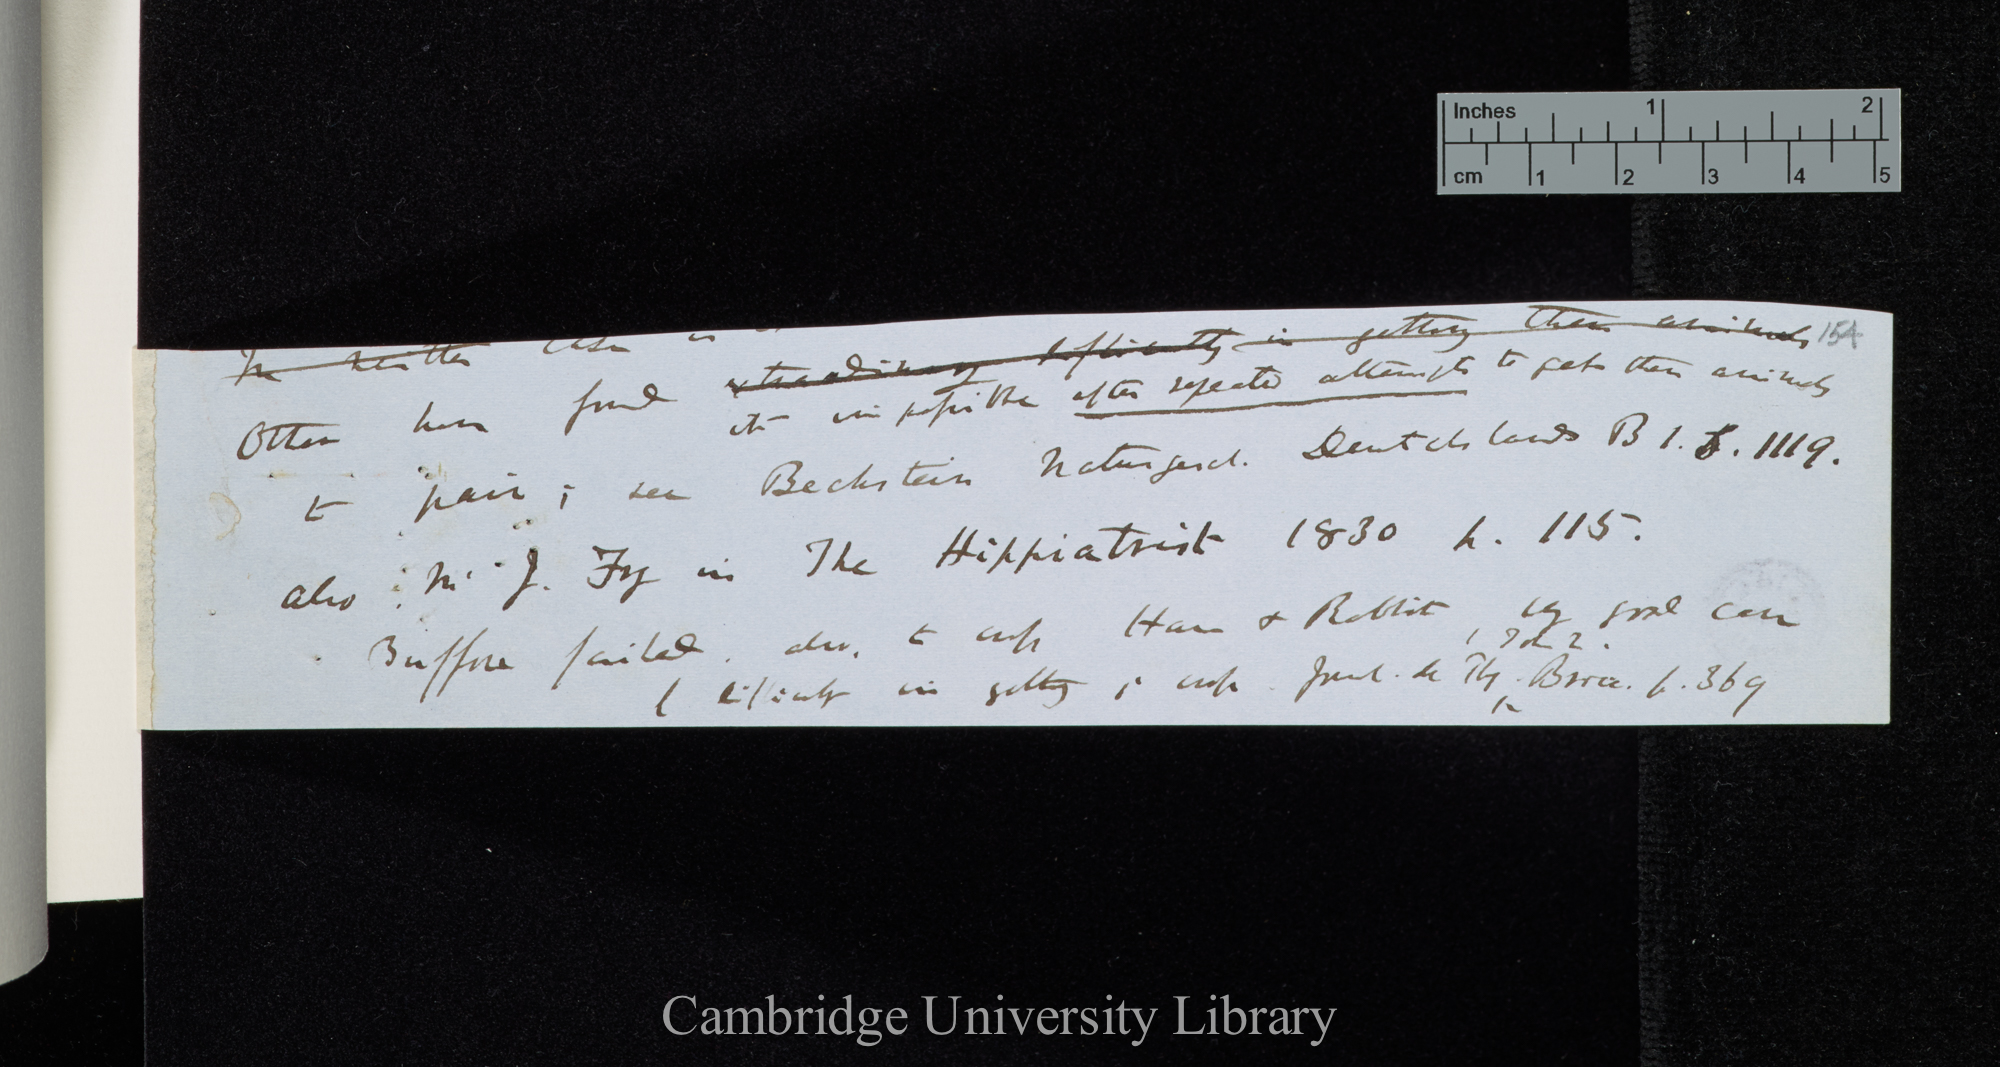 Inches 1 2
cm 1 2 3 4 5
154
In neither case is
Others have found extraordinary difficulty in getting these animals
it impossible after repeated attempts to gets these animals
to pair; see Bechstein Naturgesch. Deutchslands B 1. S. 1119.
also Mr J. Fry in The Hippiatrist 1830 p. 115.
Buffon failed. also, to cross Hare & Rabbit, by good case
Tom 2.
( difficulty in getting ; cross. Journ. de Phy. Broca. p. 369
Cambridge University Library